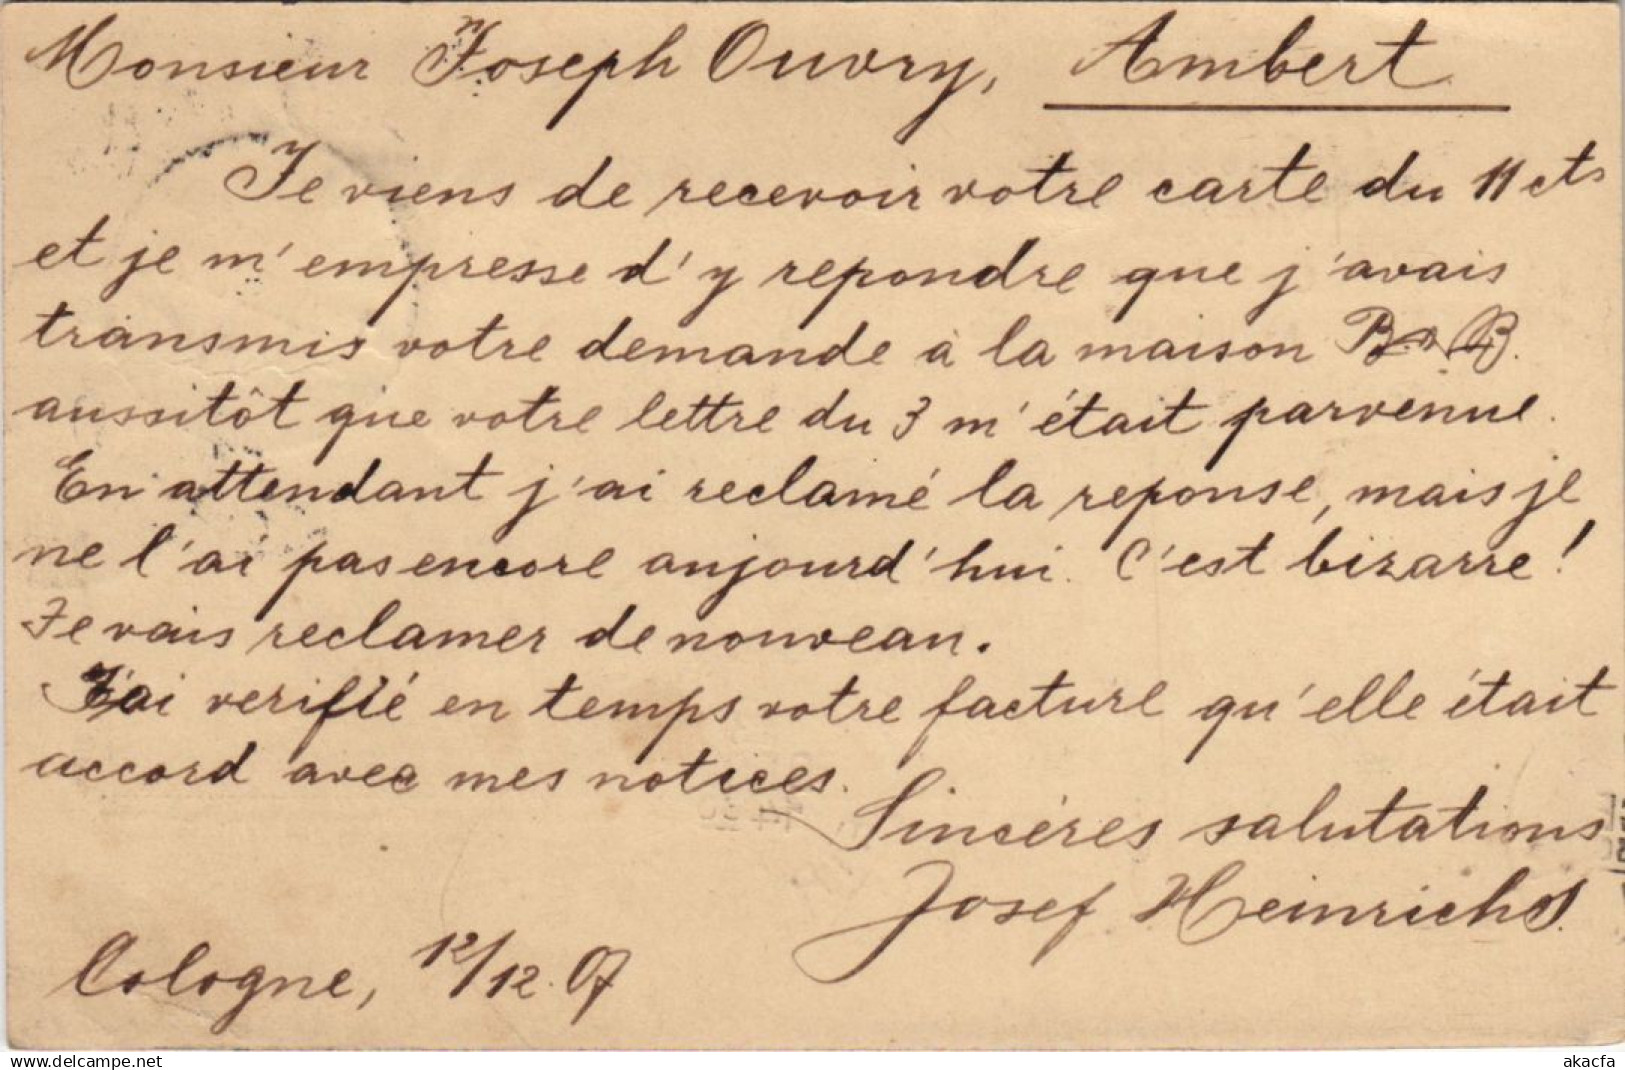 Monsieur Joseph Ouvry, Ambert
Je viens de recevoir votre carte du 11 cts
et je m'empresse d'y repondre que j'avais
transmis votre demande à la maison B & B.
aussitôt que votre lettre du 3 m'était parvenue.
En attendant j'ai reclamé la reponse, mais je
ne l'ai pas encore aujourd'hui. C'est bizarre!
Je vais reclamer de nouveau.
J'ai verifié en temps votre facture qu'elle était
accord avec mes notices.
Sincéres salutations
Josef Heinrichs.
Cologne, 12/12.07
www.delcampe.net
akacfa